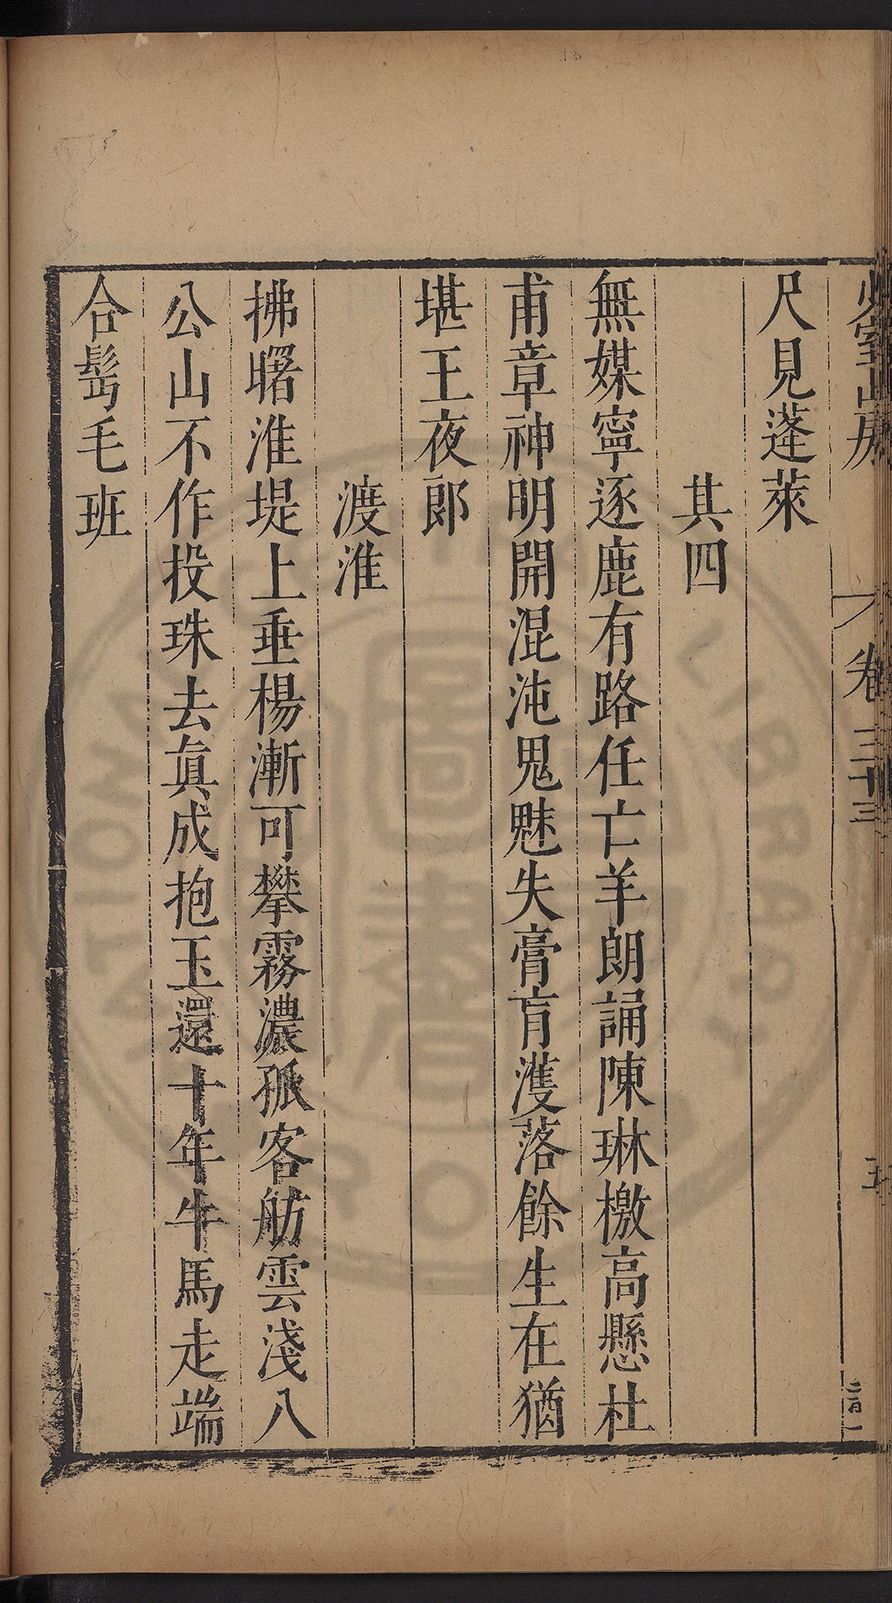 少室山房 卷三十三 五
尺見蓬萊
其四
無媒寧逐鹿有路任亡羊朗誦陳琳檄高懸杜
甫章神明開混沌鬼魅失膏肓濩落餘生在猶
堪王夜郎
渡淮
拂曙淮堤上垂楊漸可攀霧濃孤客舫雲淺八
公山不作投珠去眞成抱玉還十年牛馬走端
合髩毛班